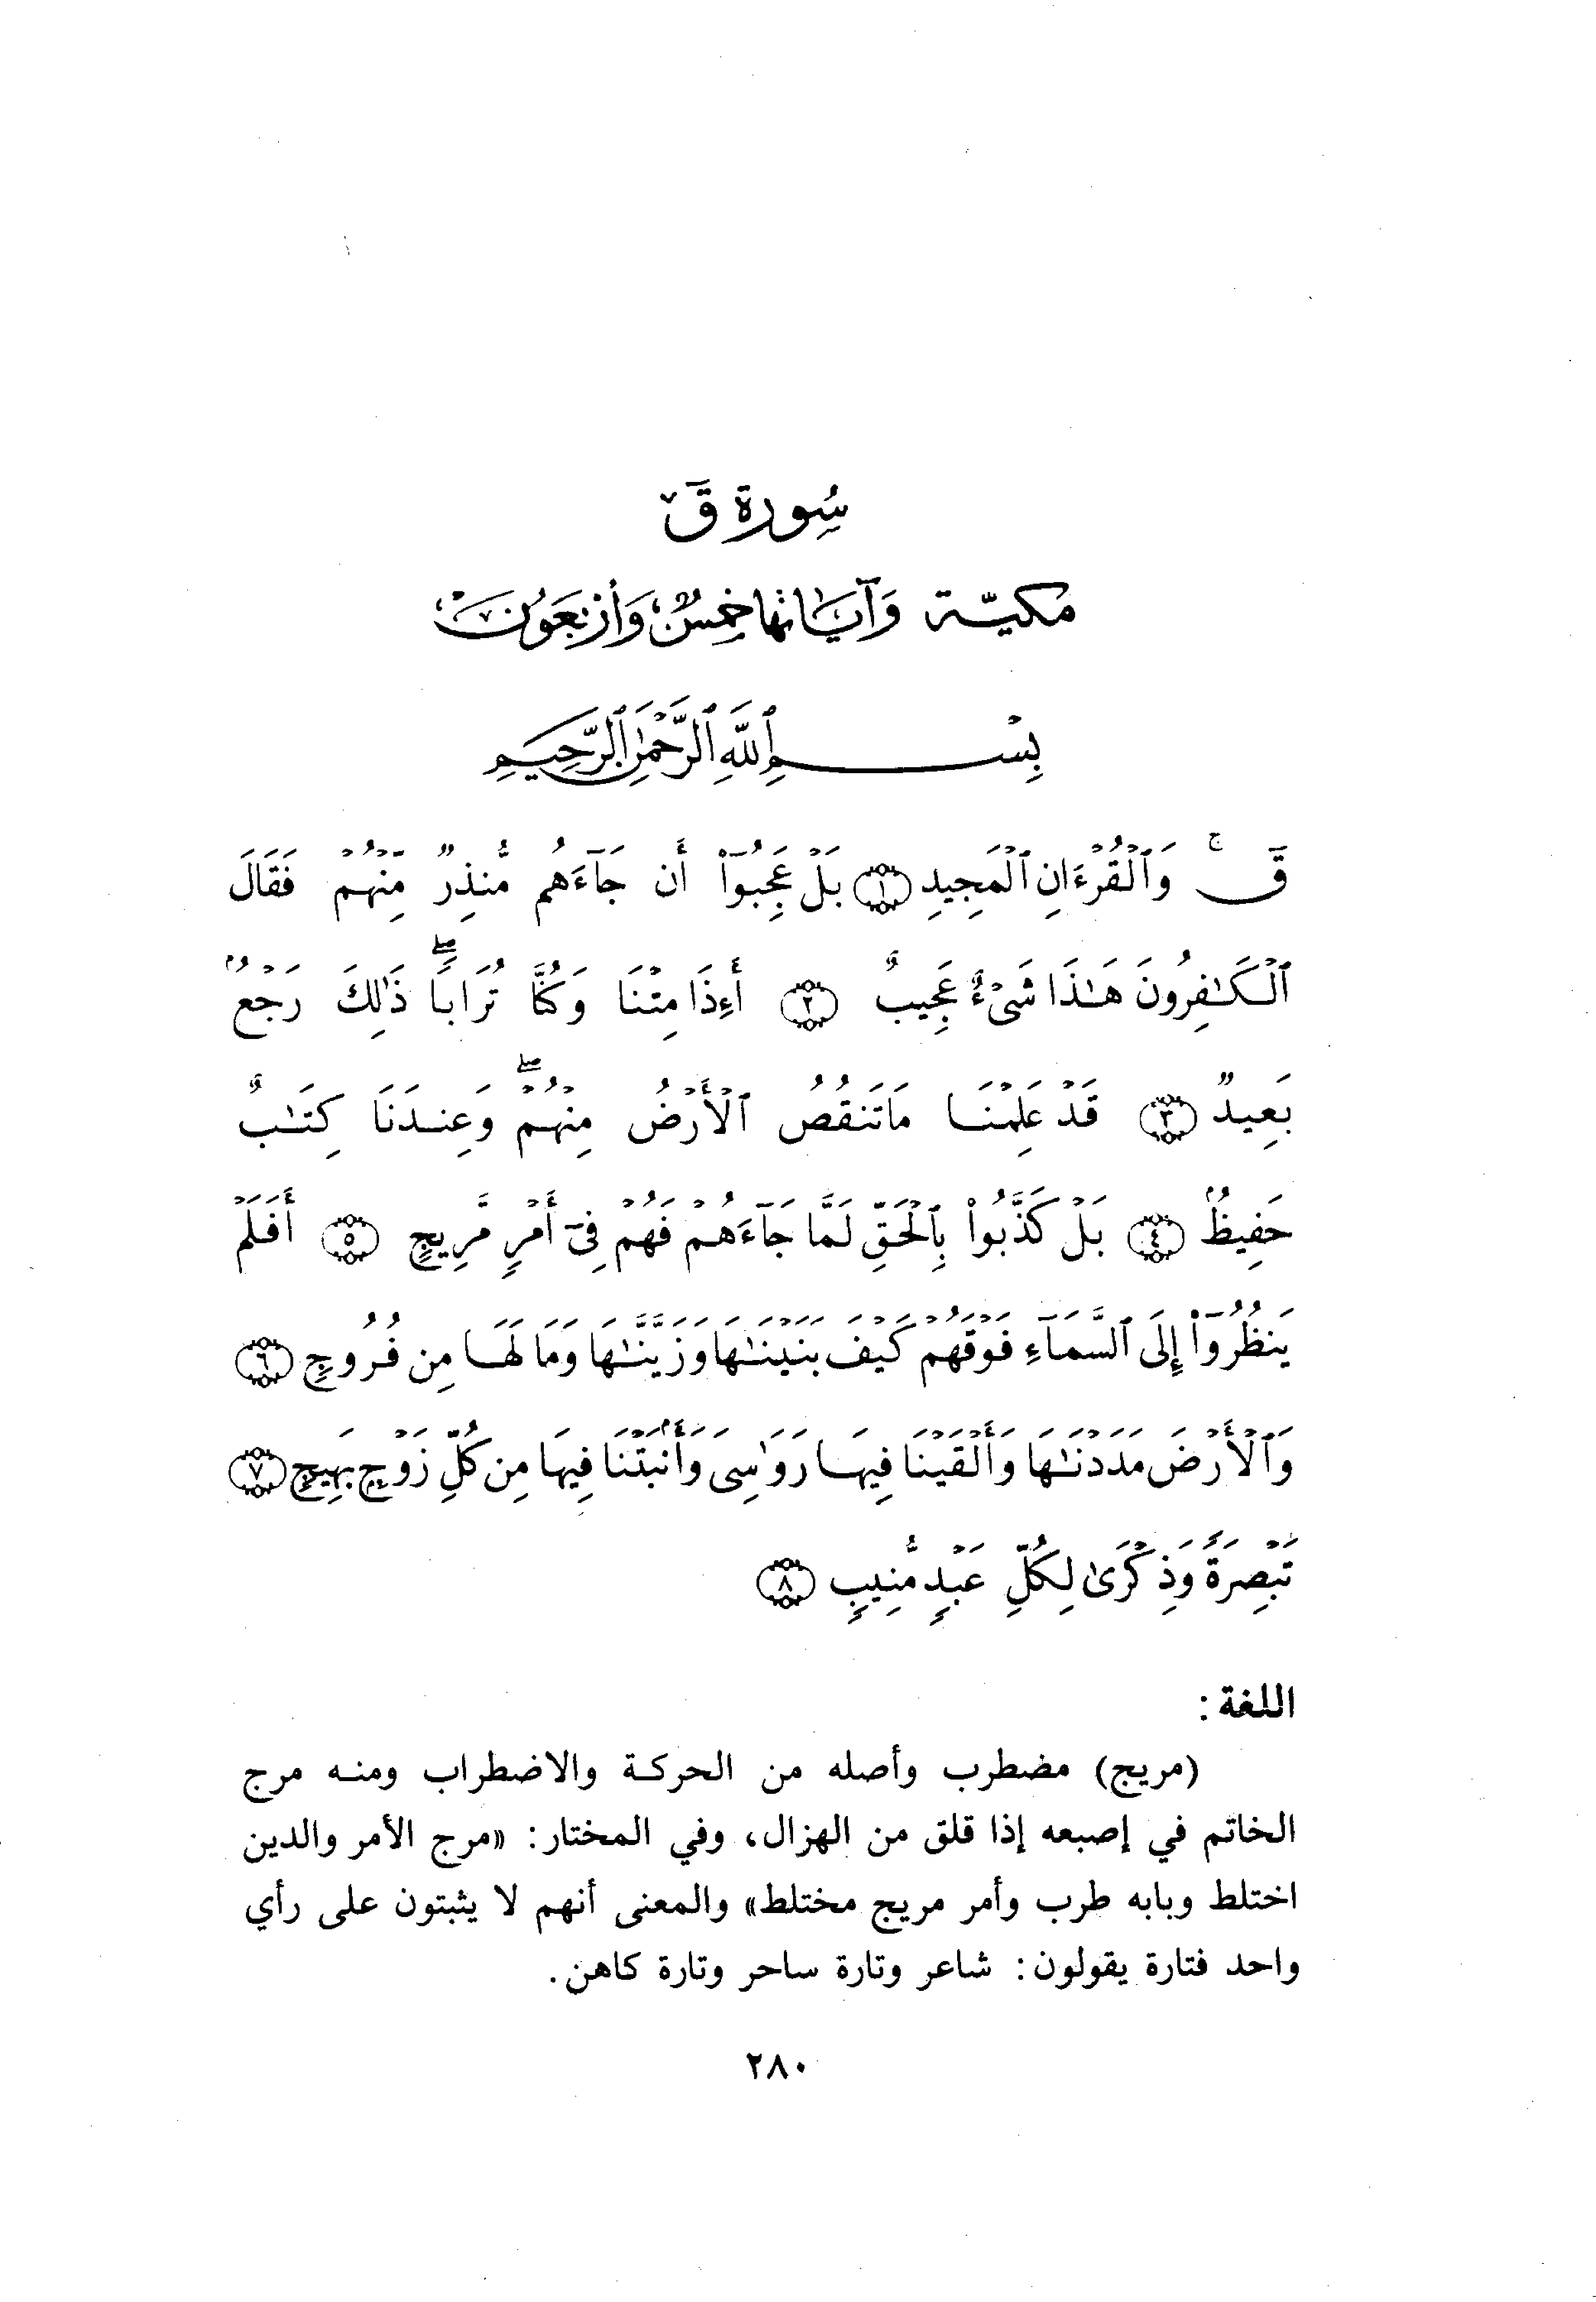 سُورة قَ
مكيّة وَآيَاتها خمسٌ وَأربَعُونَ
بِسْمِ ٱللَّهِ ٱلرَّحْمَٰنِ ٱلرَّحِيمِ
قٓ ۚ وَٱلْقُرْءَانِ ٱلْمَجِيدِ ﴿١﴾ بَلْ عَجِبُوٓا۟ أَن جَآءَهُم مُّنذِرٌ مِّنْهُمْ فَقَالَ
ٱلْكَٰفِرُونَ هَٰذَا شَىْءٌ عَجِيبٌ ﴿٢﴾ أَءِذَا مِتْنَا وَكُنَّا تُرَابًا ۖ ذَٰلِكَ رَجْعٌۢ
بَعِيدٌ ﴿٣﴾ قَدْ عَلِمْنَا مَا تَنقُصُ ٱلْأَرْضُ مِنْهُمْ ۖ وَعِندَنَا كِتَٰبٌ
حَفِيظٌۢ ﴿٤﴾ بَلْ كَذَّبُوا۟ بِٱلْحَقِّ لَمَّا جَآءَهُمْ فَهُمْ فِىٓ أَمْرٍ مَّرِيجٍ ﴿٥﴾ أَفَلَمْ
يَنظُرُوٓا۟ إِلَى ٱلسَّمَآءِ فَوْقَهُمْ كَيْفَ بَنَيْنَٰهَا وَزَيَّنَّٰهَا وَمَا لَهَا مِن فُرُوجٍ ﴿٦﴾
وَٱلْأَرْضَ مَدَدْنَٰهَا وَأَلْقَيْنَا فِيهَا رَوَٰسِىَ وَأَنۢبَتْنَا فِيهَا مِن كُلِّ زَوْجٍۭ بَهِيجٍ ﴿٧﴾
تَبْصِرَةً وَذِكْرَىٰ لِكُلِّ عَبْدٍ مُّنِيبٍ ﴿٨﴾
اللغة :
(مريج) مضطرب وأصله من الحركة والاضطراب ومنه مرج
الخاتم في إصبعه إذا قلق من الهزال، وفي المختار: «مرج الأمر والدين
اختلط وبابه طرب وأمر مريج مختلط» والمعنى أنهم لا يثبتون على رأي
واحد فتارة يقولون: شاعر وتارة ساحر وتارة كاهن.
٢٨٠